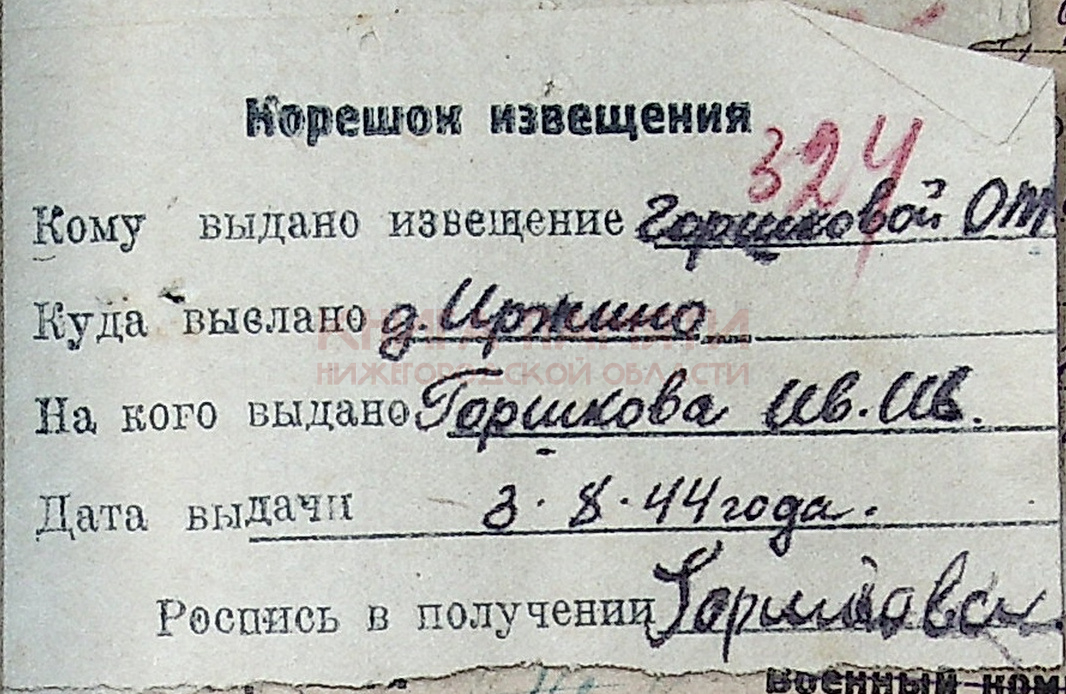 Корешок извещения
324
Кому выдано извещение Горшковой ОТ
Куда выслано д. Иржино
КНИГА ПАМЯТИ
НИЖЕГОРОДСКОЙ ОБЛАСТИ
На кого выдано Горшкова Ив. Ив.
Дата выдачи 3. 8. 44 года.
Роспись в получении Горшкова
Военный ком